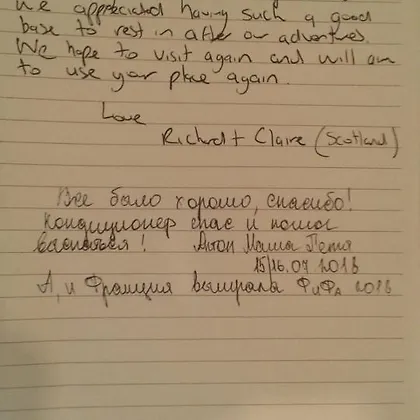 We appreciated having such a good
base to rest in after our adventures.
We hope to visit again and will aim
to use your place again.
Love
Richard + Claire (Scotland)
Все было хорошо, спасибо!
Кондиционер спас и помог
выспаться! Антон Маша Петя
15/16.07 2018
А, и Франция выиграла ФиФА 2018